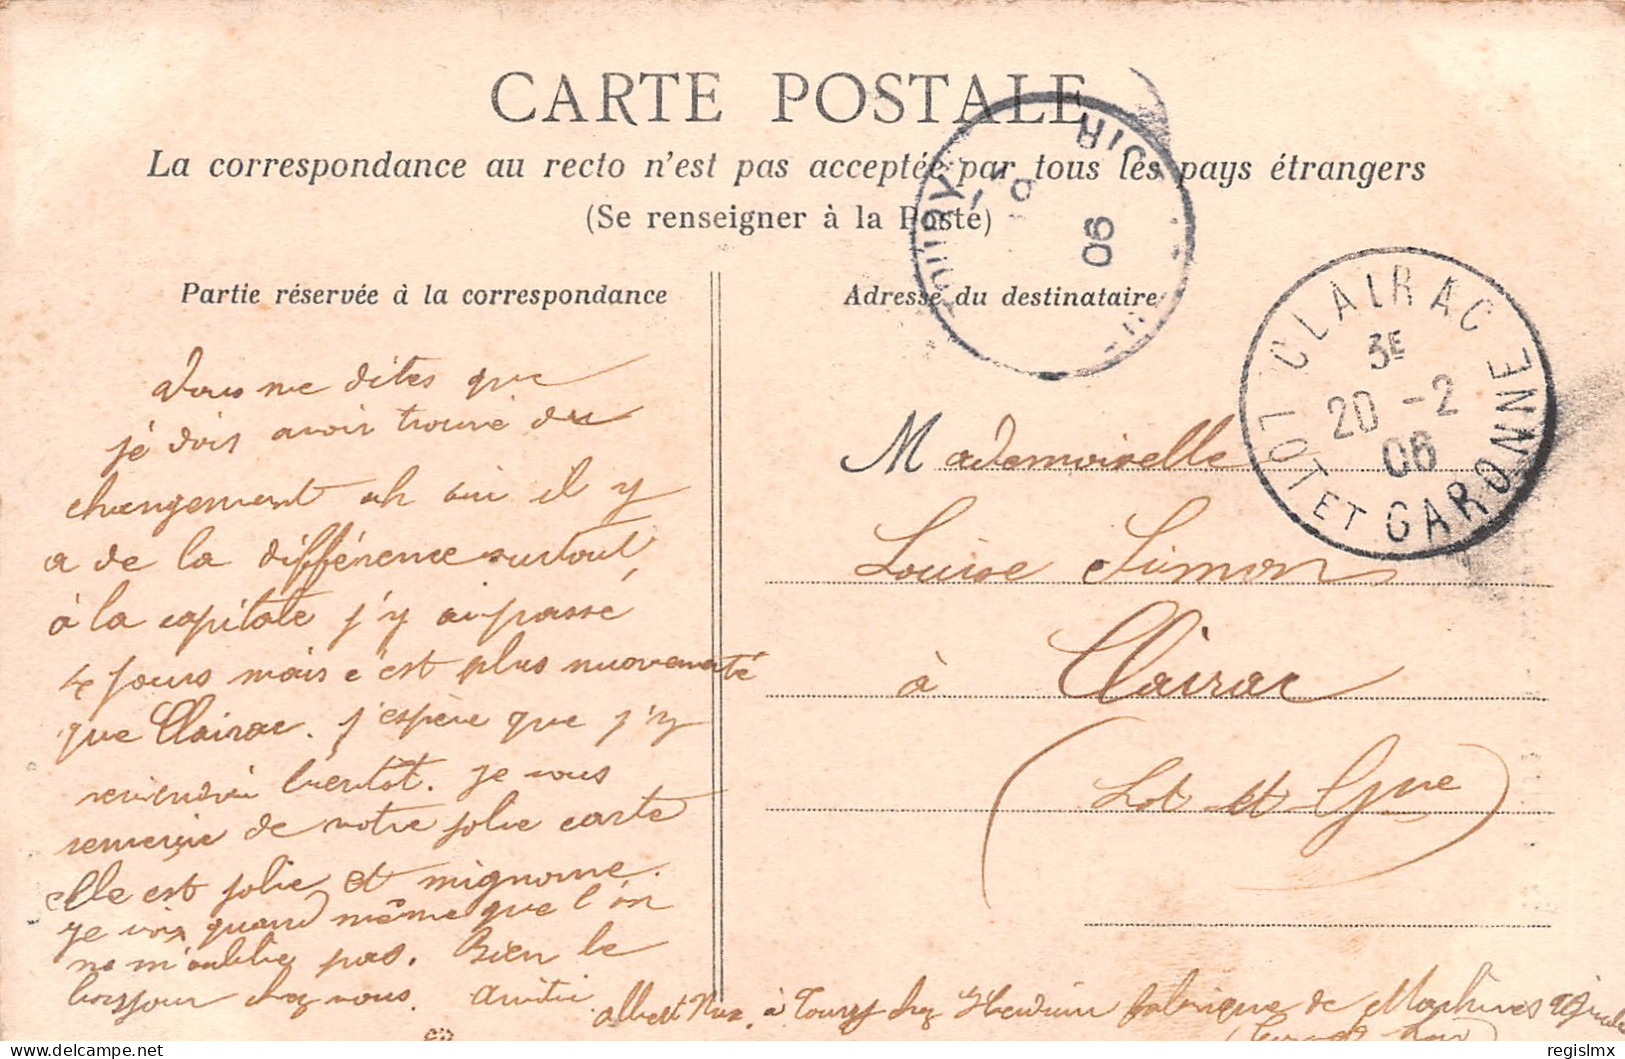 CARTE POSTALE
La correspondance au recto n'est pas acceptée par tous les pays étrangers
(Se renseigner à la Poste)
Partie réservée à la correspondance
Vous me dites que
je dois avoir trouvé du
changement ah oui il y
a de la différence surtout
à la capitale j'y ai passé
4 jours mais c'est plus mouvementé
que Clairac. j'espère que j'y
reviendrai bientôt. je vous
remercie de votre jolie carte
elle est jolie et mignonne.
je vois quand même que l'on
ne m'oublie pas. Bien le
bonjour chez vous. Amitié
Albert à Tours chez fabrique de Machines
Adresse du destinataire
06
CLAIRAC
3E
20 -2
06
LOT ET GARONNE
Mademoiselle
Louise Simon
à Clairac
(Lot et Gne)
regislmx